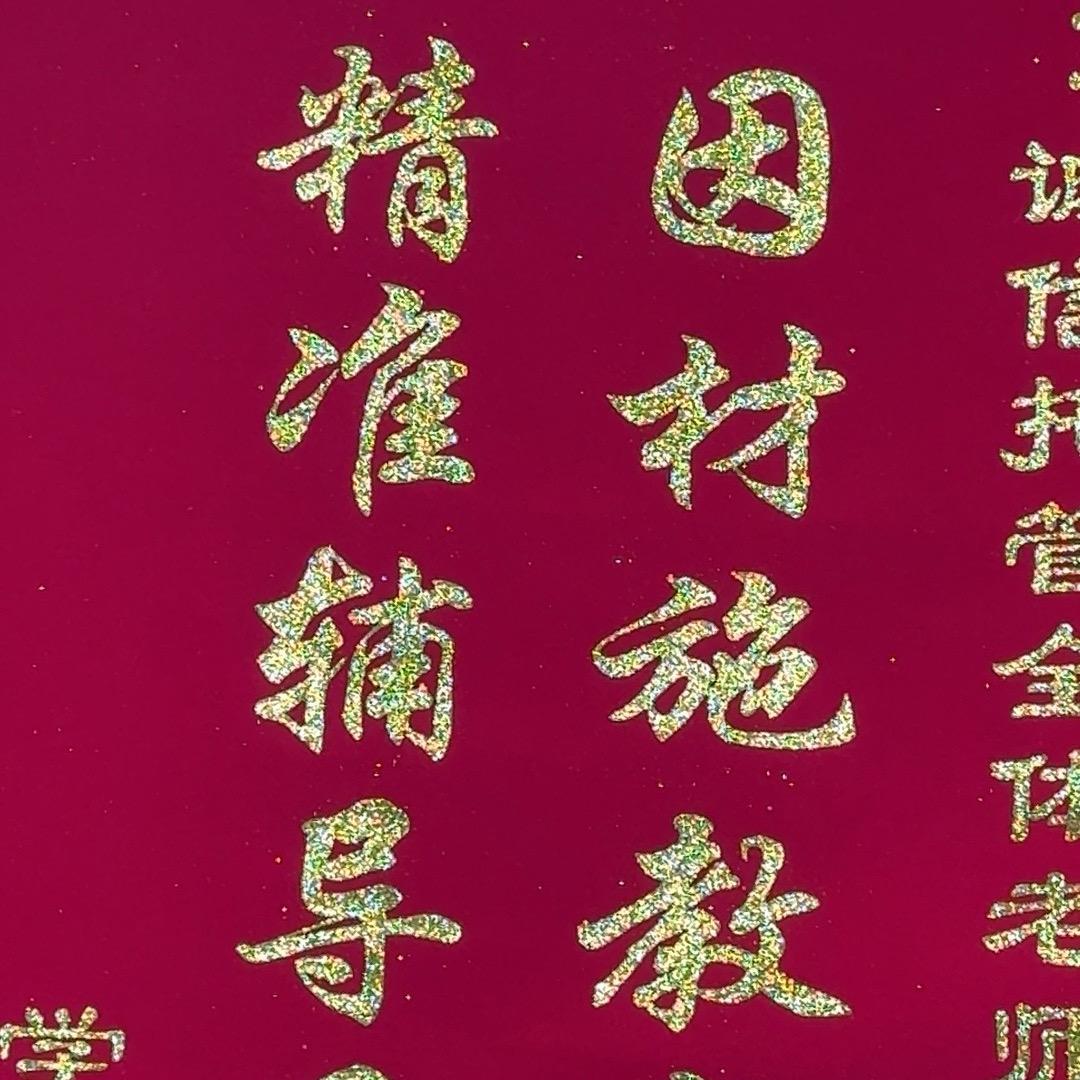 诚信托管全体老师
因材施教
精准辅导
学